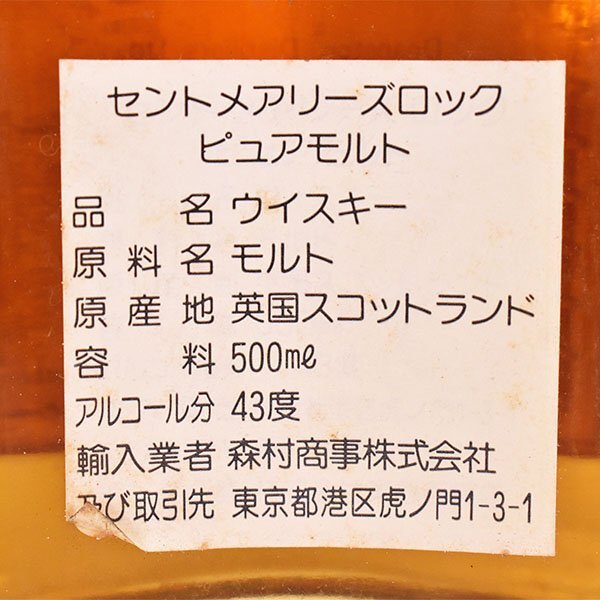 セントメアリーズロック
ピュアモルト
品名 ウイスキー
原料名 モルト
原産地 英国スコットランド
容料 500mℓ
アルコール分 43度
輸入業者 森村商事株式会社
及び取引先 東京都港区虎ノ門1-3-1